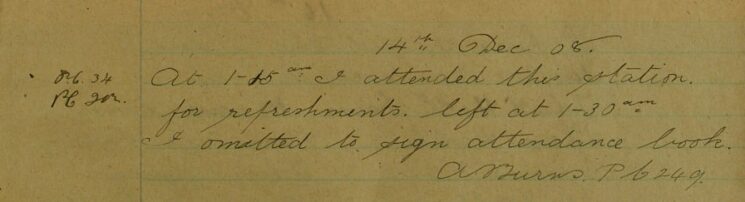 14th Dec 08.
P.C. 34
At 1-15 am I attended this station.
PC 202.
for refreshments. left at 1-30 am
I omitted to sign attendance book.
A Burns. PC 249.